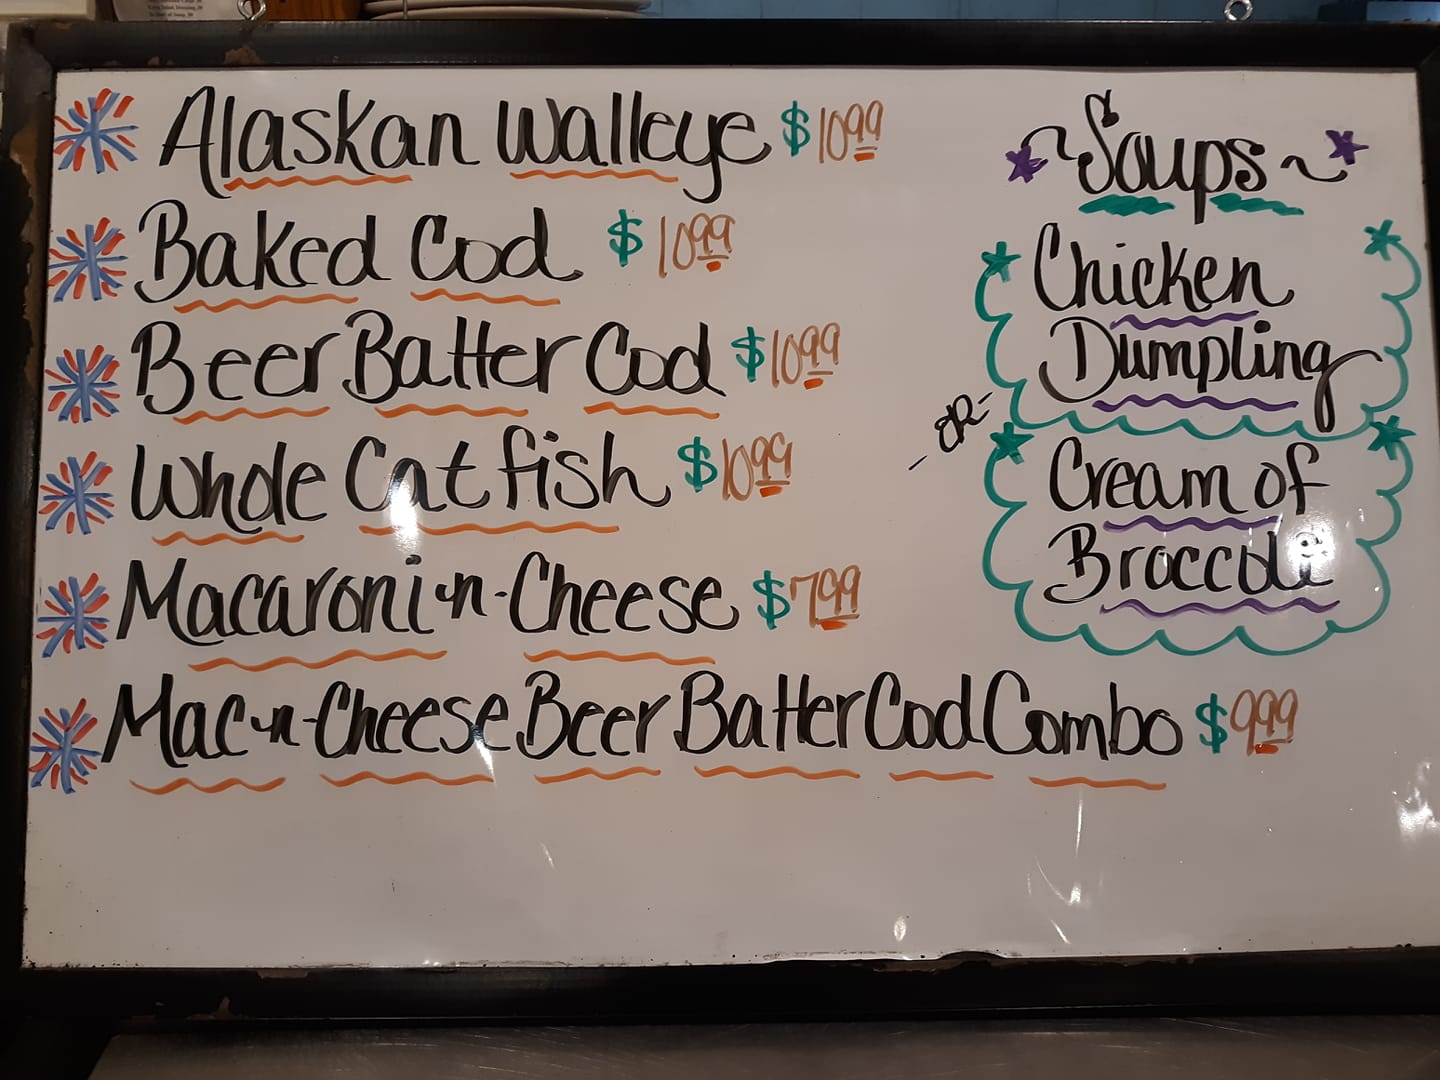 Alaskan Walleye $10.99
Baked Cod $10.99
Beer Batter Cod $10.99
Whole Catfish $10.99
Macaroni-n-Cheese $7.99
Mac-n-Cheese Beer Batter Cod Combo $9.99
~Soups~
Chicken
Dumpling
-OR-
Cream of
Broccoli